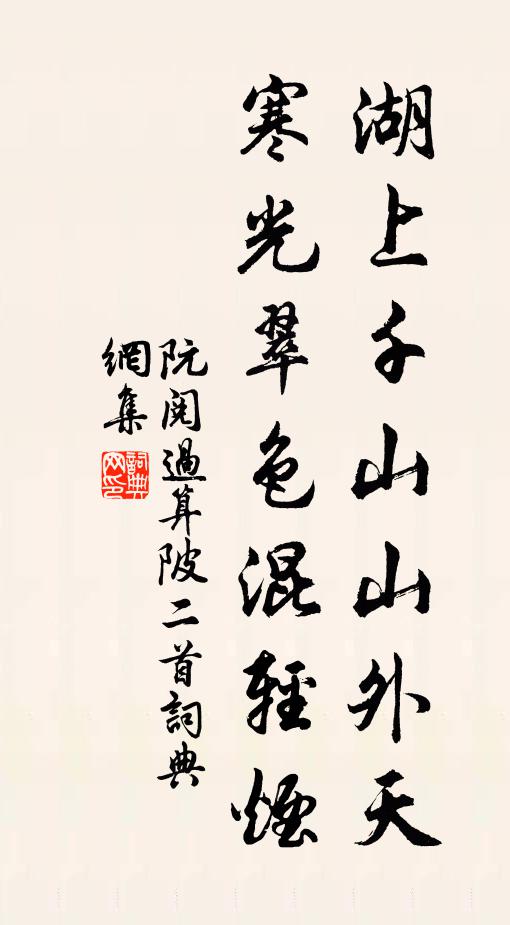 湖上千山山外天
寒光翠色混輕煙
阮閱過算陂二首詞典
網集
詞典網印